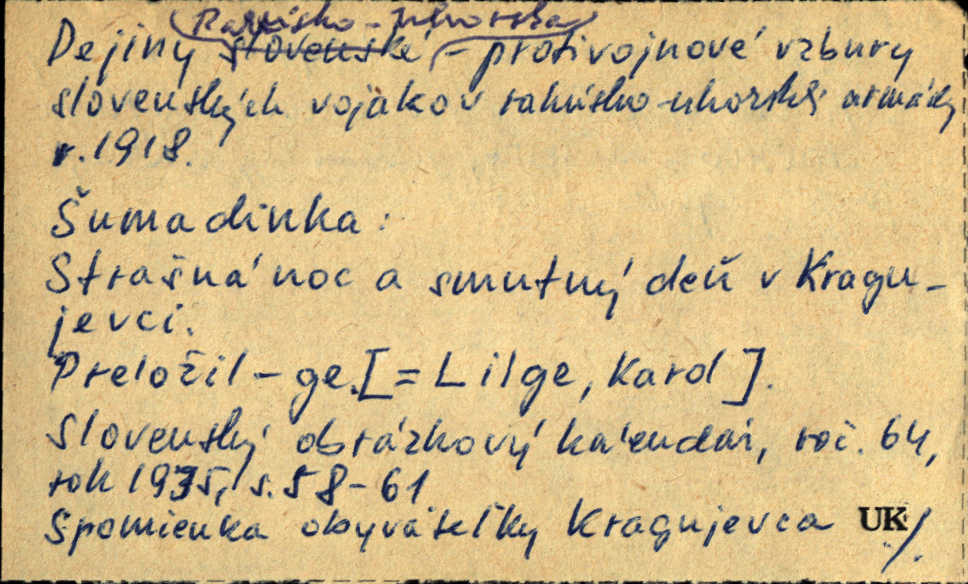 Rakúsko-Uhorska
Dejiny slovenské, - protivojnové vzbury
slovenských vojakov rakúsko-uhorskej armády
r. 1918.
Šumadinka:
Strašná noc a smutný deň v Kragu-
jevci.
Preložil -ge. [= Lilge, Karol].
Slovenský obrázkový kalendár, roč. 64,
rok 1935, s. 58-61
Spomienka obyvateľky Kragujevca UK